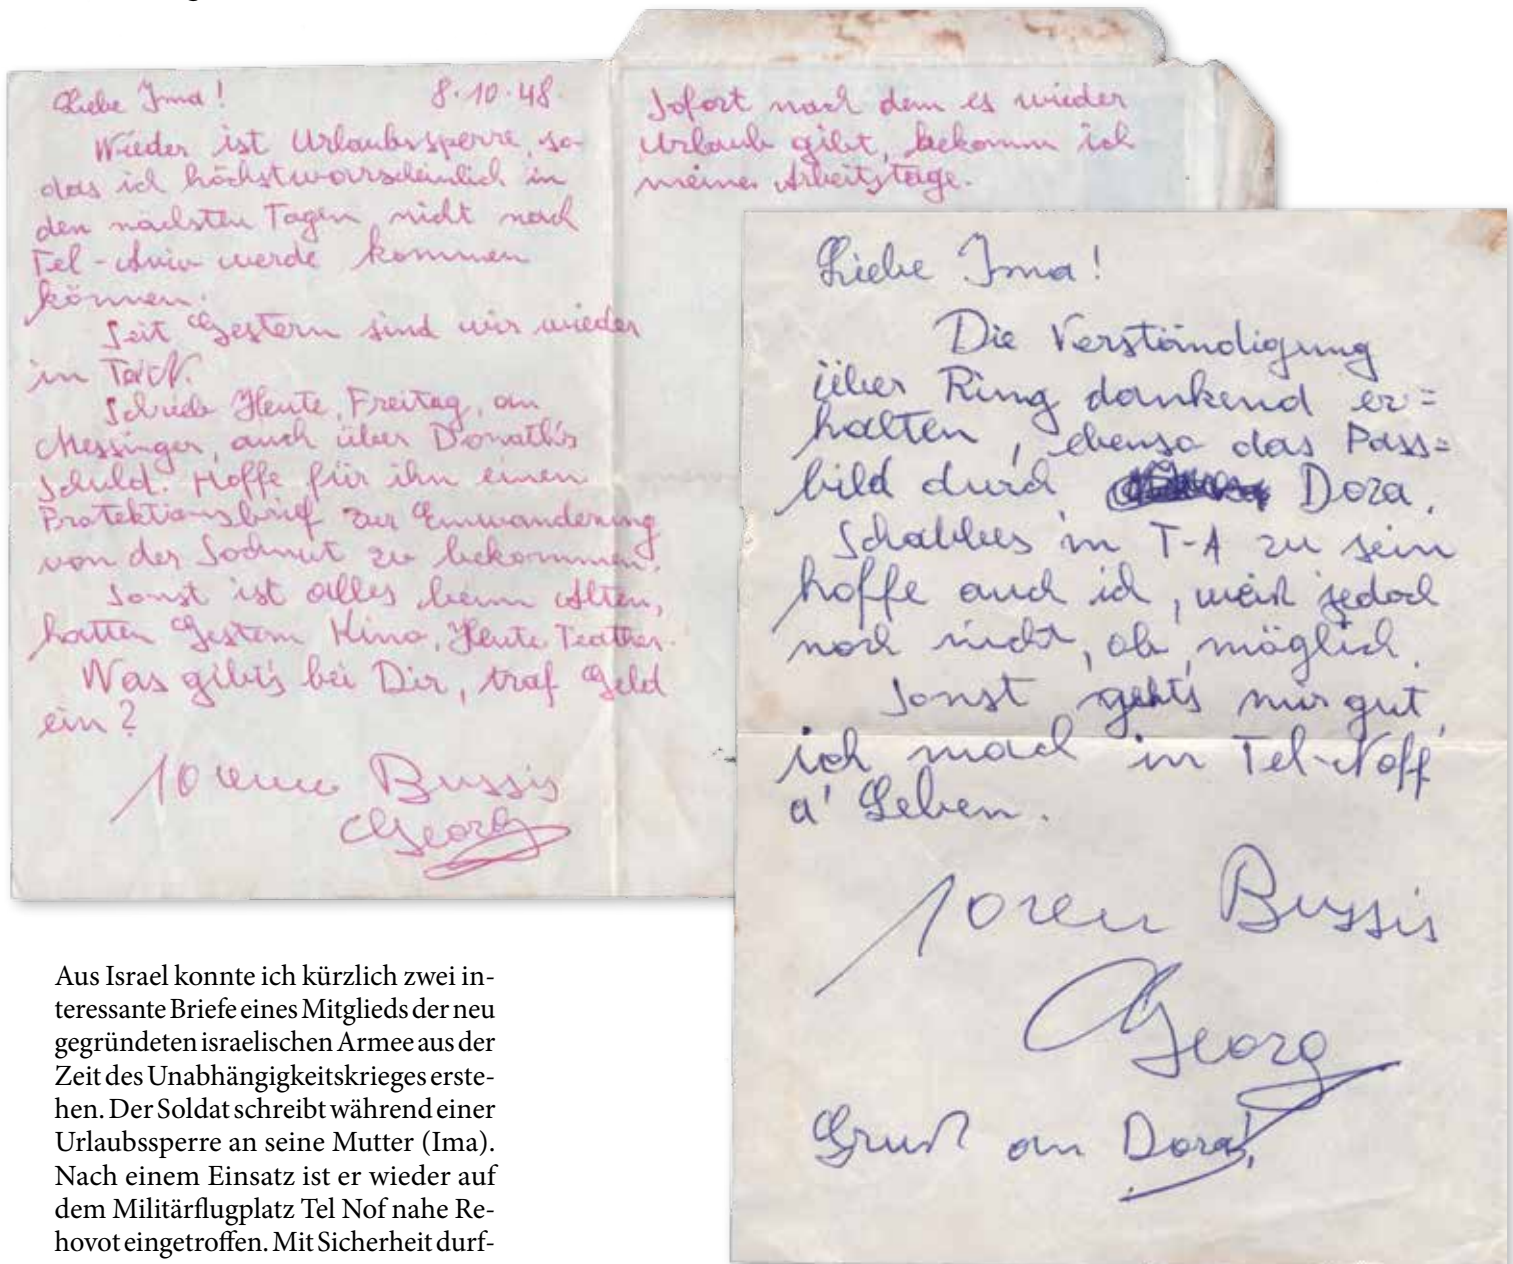 Liebe Ima! 8.10.48.
Wieder ist Urlaubssperre, so-
das ich höchstworscheinlich in
den nächsten Tagen nicht nach
Tel-Aviv werde kommen
können.
Seit Gestern sind wir wieder
in
Schrieb Heute, Freitag, an
Messinger, auch über Donath's
Schuld. Hoffe für ihn einen
Protektionsbrief zur Einwanderung
von der Sochnut zu bekommen.
Sonst ist alles beim Alten,
hatten Gestern Kino, Heute Teather.
Was gibt's bei Dir, traf Geld
ein?
Bussis
Georg
Sofort nach dem es wieder
Urlaub gibt, bekomm ich
meine Arbeitstage.
Liebe Ima!
Die Verständigung
über Ring dankend er=
halten, ebenso das Pass=
bild durch Dora.
Schabbes in T-A zu sein
hoffe auch ich, weiß jedoch
noch nicht, ob möglich.
Sonst geht's mir gut,
ich mach in Tel-Noff
a' Leben.
Bussis
Georg
Gruß an Dora!
Aus Israel konnte ich kürzlich zwei in-
teressante Briefe eines Mitglieds der neu
gegründeten israelischen Armee aus der
Zeit des Unabhängigkeitskrieges erste-
hen. Der Soldat schreibt während einer
Urlaubssperre an seine Mutter (Ima).
Nach einem Einsatz ist er wieder auf
dem Militärflugplatz Tel Nof nahe Re-
hovot eingetroffen. Mit Sicherheit durf-